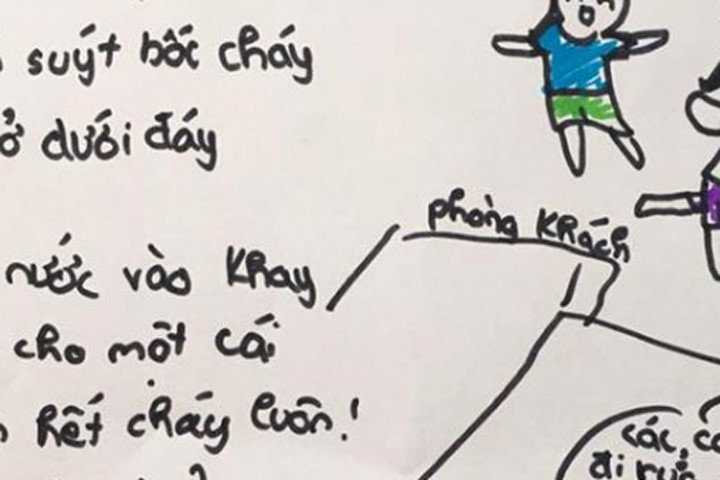 suýt bốc cháy
ở dưới đáy
nước vào khay
cho một cái
hết cháy luôn!
phòng khách
các,
đi